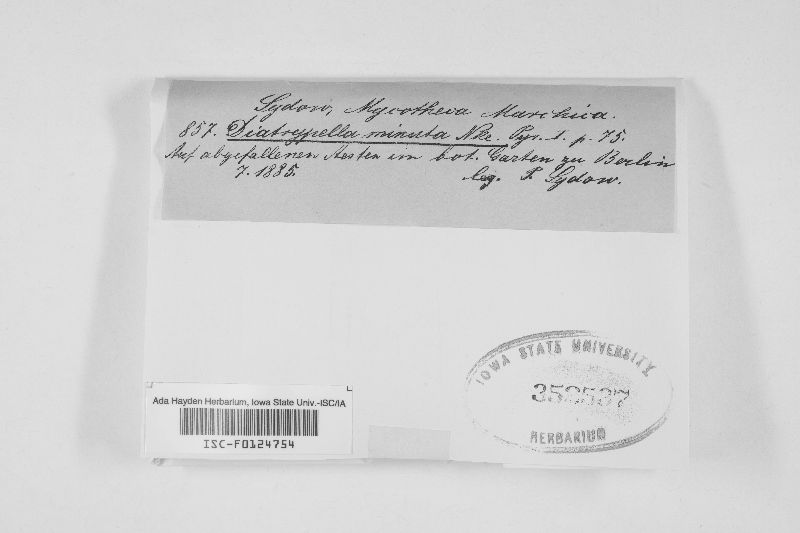 Sydow, Mycotheca Marchica.
857. Diatrypella minuta Nke. Pyr. 1. p. 75.
Auf abgefallenen Aesten im bot. Garten zu Berlin
7. 1885. leg. P. Sydow.
IOWA STATE UNIVERSITY
352537
HERBARIUM
Ada Hayden Herbarium, Iowa State Univ.-ISC/IA
ISC-F0124754